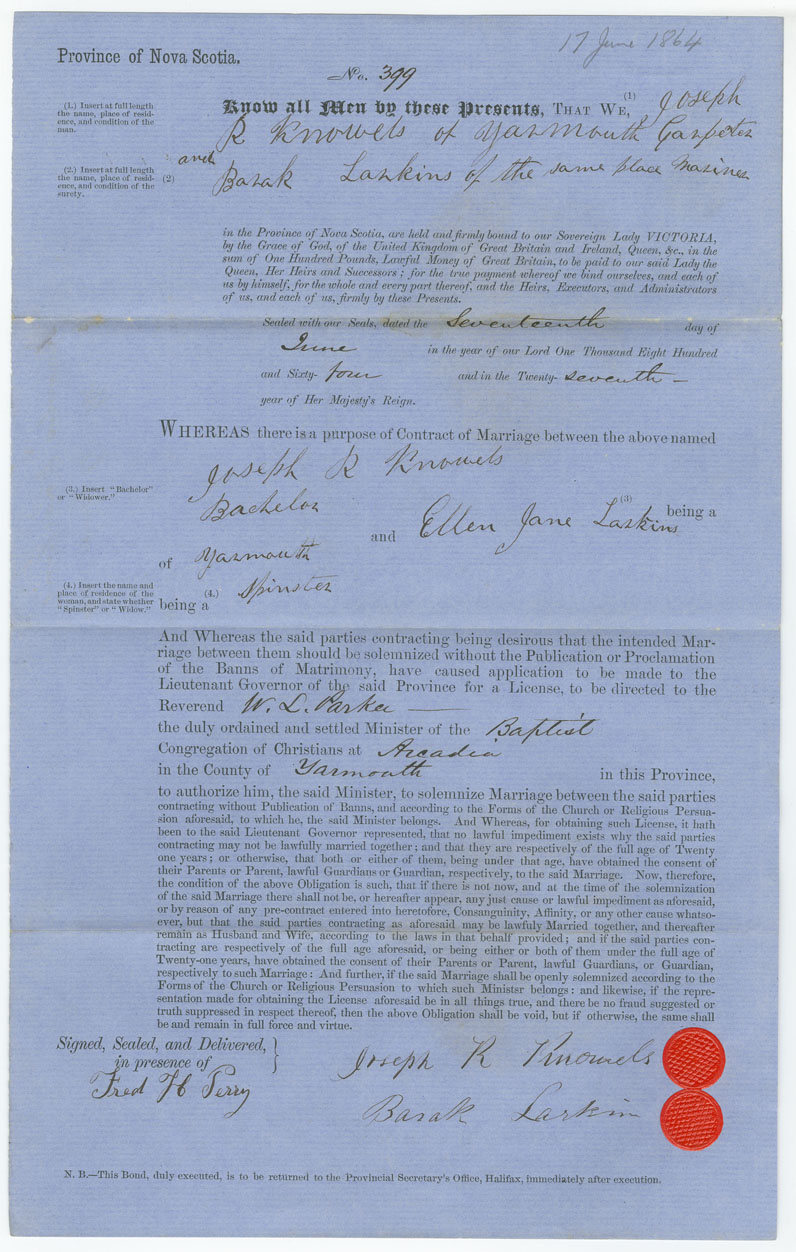 17 June 1864
Province of Nova Scotia.
No. 399
(1.) Insert at full length
the name, place of resid-
ence, and condition of the
man.
Know all Men by these Presents, THAT WE, (1) Joseph
R Knowels of Yarmouth Carpeter
and
(2.) Insert at full length
the name, place of resid-
ence, and condition of the
surety.
(2) Barak Larkins of the same place Mariner
in the Province of Nova Scotia, are held and firmly bound to our Sovereign Lady VICTORIA,
by the Grace of God, of the United Kingdom of Great Britain and Ireland, Queen, &c., in the
sum of One Hundred Pounds, Lawful Money of Great Britain, to be paid to our said Lady the
Queen, Her Heirs and Successors; for the true payment whereof we bind ourselves, and each of
us by himself, for the whole and every part thereof, and the Heirs, Executors, and Administrators
of us, and each of us, firmly by these Presents.
Sealed with our Seals, dated the Seventeenth day of
June in the year of our Lord One Thousand Eight Hundred
and Sixty- four and in the Twenty- seventh —
year of Her Majesty's Reign.
WHEREAS there is a purpose of Contract of Marriage between the above named
Joseph R Knowels
(3.) Insert "Bachelor"
or "Widower."
(3) being a
Bachelor
and Ellen Jane Larkins
of Yarmouth
(4.) Insert the name and
place of residence of the
woman, and state whether
"Spinster" or "Widow."
being a (4.) Spinster
And Whereas the said parties contracting being desirous that the intended Mar-
riage between them should be solemnized without the Publication or Proclamation
of the Banns of Matrimony, have caused application to be made to the
Lieutenant Governor of the said Province for a License, to be directed to the
Reverend W. L. Parker —
the duly ordained and settled Minister of the Baptist
Congregation of Christians at Arcadia
in the County of Yarmouth in this Province,
to authorize him, the said Minister, to solemnize Marriage between the said parties
contracting without Publication of Banns, and according to the Forms of the Church or Religious Persua-
sion aforesaid, to which he, the said Minister belongs. And Whereas, for obtaining such License, it hath
been to the said Lieutenant Governor represented, that no lawful impediment exists why the said parties
contracting may not be lawfully married together; and that they are respectively of the full age of Twenty
one years; or otherwise, that both or either of them, being under that age, have obtained the consent of
their Parents or Parent, lawful Guardians or Guardian, respectively, to the said Marriage. Now, therefore,
the condition of the above Obligation is such, that if there is not now, and at the time of the solemnization
of the said Marriage there shall not be, or hereafter appear, any just cause or lawful impediment as aforesaid,
or by reason of any pre-contract entered into heretofore, Consanguinity, Affinity, or any other cause whatso-
ever, but that the said parties contracting as aforesaid may be lawfuly Married together, and thereafter
remain as Husband and Wife, according to the laws in that behalf provided; and if the said parties con-
tracting are respectively of the full age aforesaid, or being either or both of them under the full age of
Twenty-one years, have obtained the consent of their Parents or Parent, lawful Guardians, or Guardian,
respectively to such Marriage: And further, if the said Marriage shall be openly solemnized according to the
Forms of the Church or Religious Persuasion to which such Minister belongs: and likewise, if the repre-
sentation made for obtaining the License aforesaid be in all things true, and there be no fraud suggested or
truth suppressed in respect thereof, then the above Obligation shall be void, but if otherwise, the same shall
be and remain in full force and virtue.
Signed, Sealed, and Delivered, }
in presence of
Joseph R Knowels
Fred H Perry
Barak Larkin
N. B.—This Bond, duly executed, is to be returned to the Provincial Secretary's Office, Halifax, immediately after execution.